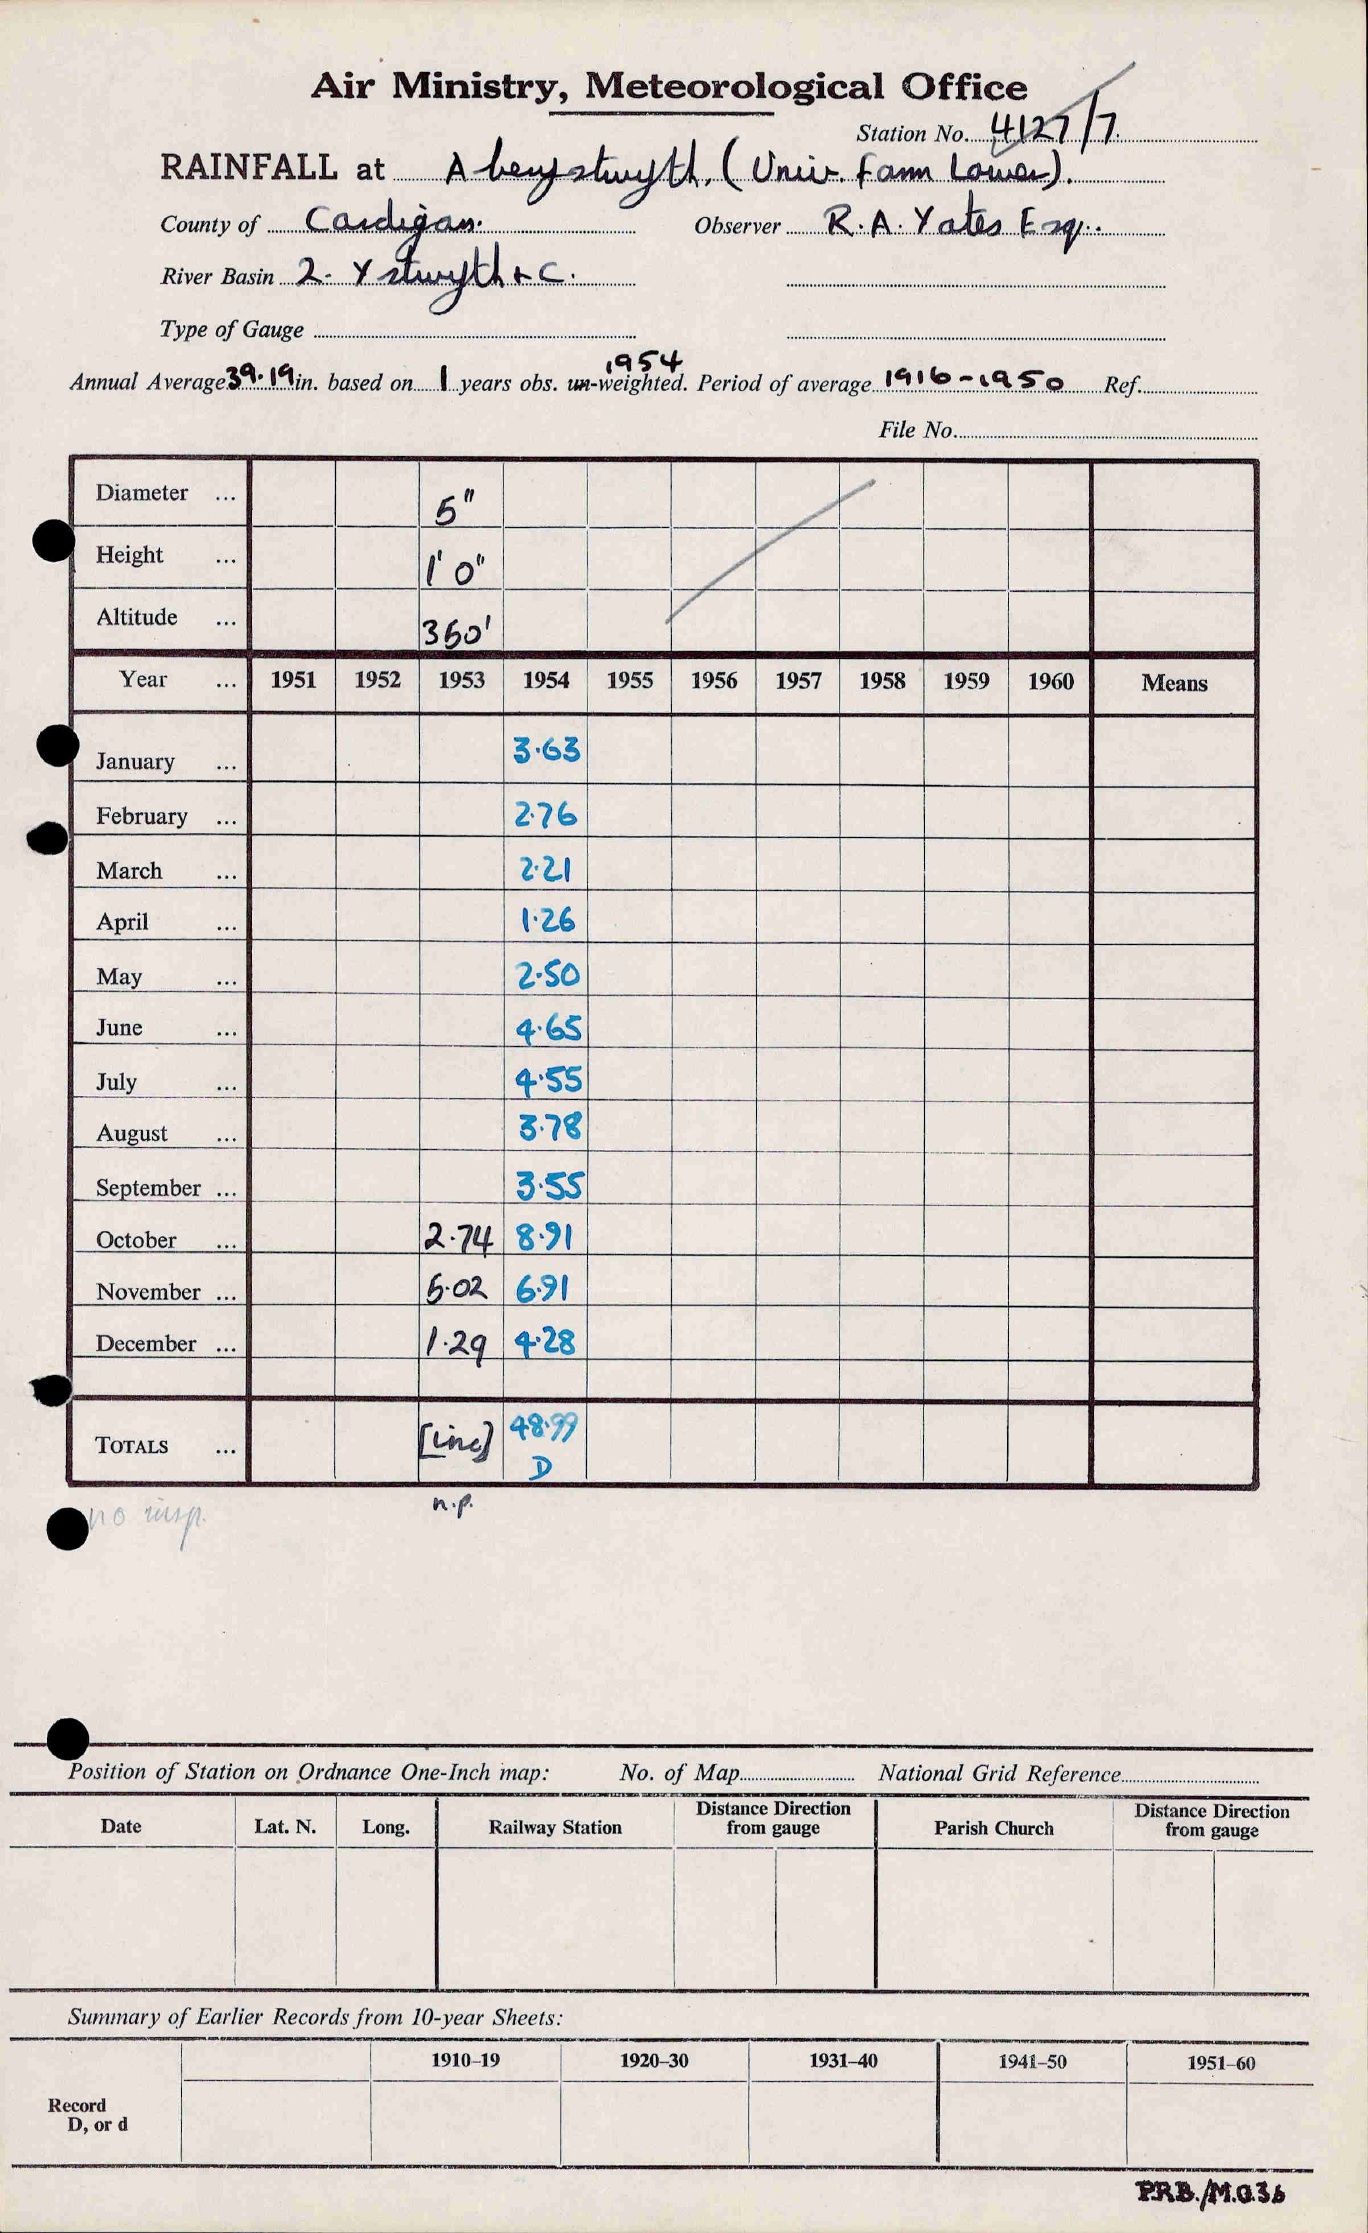 Air Ministry, Meteorological Office
Station No. 4127/7
RAINFALL at Aberystwyth. (Univ. Farm Lower).
County of Cardigan. Observer R. A. Yates Esq..
River Basin 2. Ystwyth + C.
Type of Gauge
1954
Annual Average 39.19 in. based on 1 years obs. un-weighted. Period of average 1916-1950 Ref.
File No.
Diameter ... 5"
Height ... 1' 0"
Altitude ... 350'
Year ... 1951 1952 1953 1954 1955 1956 1957 1958 1959 1960 Means
January ... 3.63
February ... 2.76
March ... 2.21
April ... 1.26
May ... 2.50
June ... 4.65
July ... 4.55
August ... 3.78
September ... 3.55
October ... 2.74 8.91
November ... 5.02 6.91
December ... 1.29 4.28
TOTALS ... [inc] 48.99
D
no insp. n.p.
Position of Station on Ordnance One-Inch map: No. of Map National Grid Reference
Date Lat. N. Long. Railway Station Distance Direction from gauge Parish Church Distance Direction from gauge
Summary of Earlier Records from 10-year Sheets:
1910–19 1920–30 1931–40 1941–50 1951–60
Record
D, or d
P.R.B./M.O.36